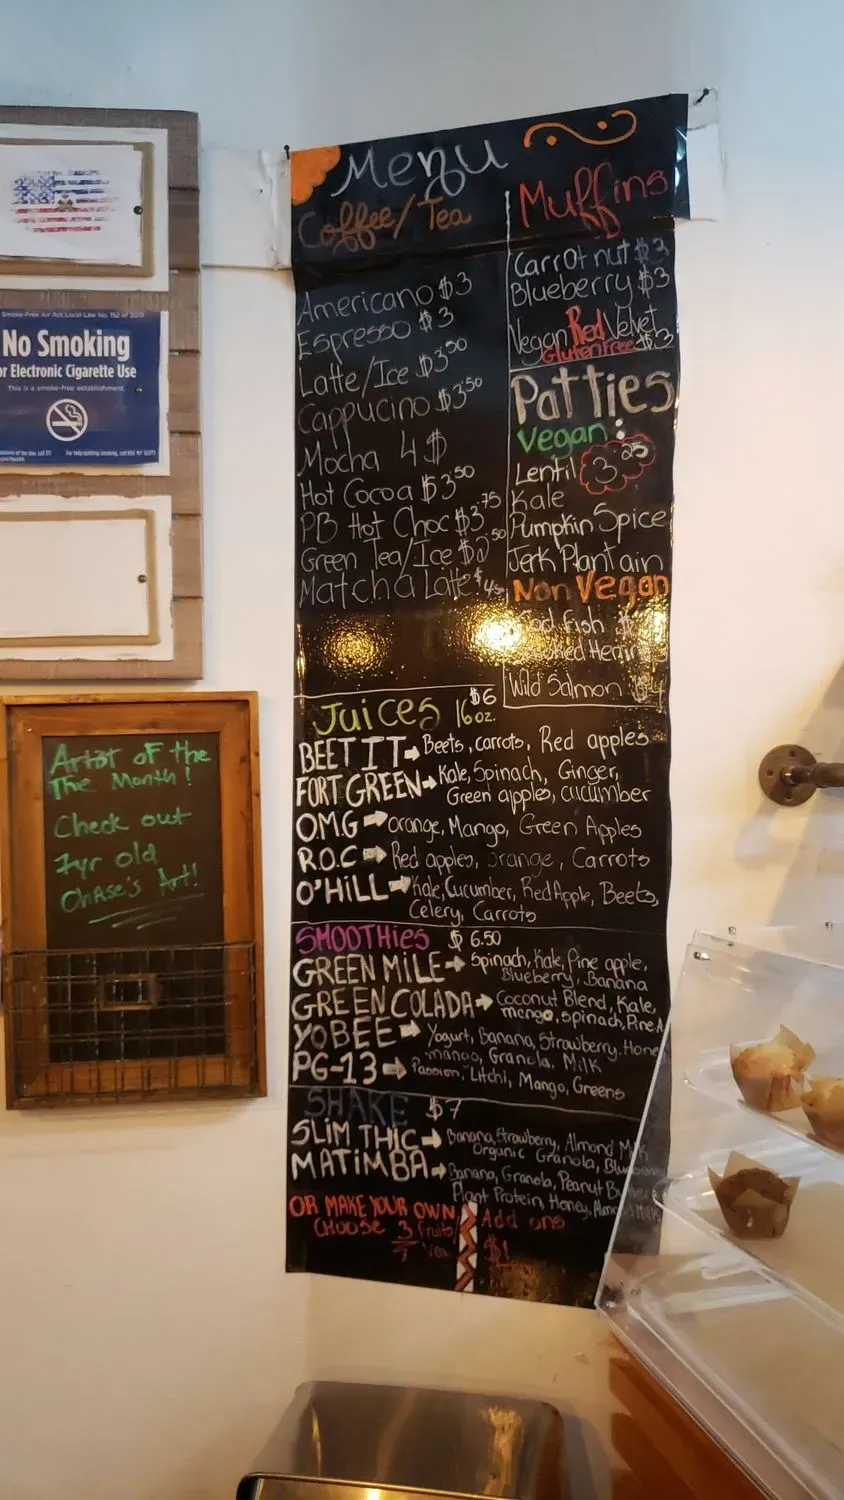 Smoke-Free Air Act Local Law No. 152 of 2013
No Smoking
or Electronic Cigarette Use
This is a smoke-free establishment
Artist of the
The Month!
Check out
7yr old
Chase's Art!
Menu
Coffee/Tea
Americano $3
Espresso $3
Latte/Ice $3.50
Cappucino $3.50
Mocha 4$
Hot Cocoa $3.50
PB Hot Choc $3.75
Green Tea/Ice $2.50
Matcha Latte
Muffins
Carrot nut $3
Blueberry $3
Vegan Red Velvet
Gluten Free $3
Patties
Vegan!
Lentil 3.25
Kale
Pumpkin Spice
Jerk Plantain
Non Vegan
Fish
Wild Salmon $4
Juices $6 16oz.
BEET IT → Beets, carrots, Red apples
FORT GREEN → Kale, Spinach, Ginger,
Green apples, cucumber
OMG → Orange, Mango, Green Apples
R.O.C → Red apples, orange, Carrots
O'HiLL → Kale, Cucumber, Red Apple, Beets,
Celery, Carrots
SMOOTHies $6.50
GREEN MiLE → Spinach, Kale, Pine apple,
Blueberry, Banana
GREEN COLADA → Coconut Blend, Kale,
mango, spinach, Pine A
YOBEE → Yogurt, Banana, Strawberry, Hone
mango, Granola, Milk
PG-13 → Passion, Litchi, Mango, Greens
SHAKE $7
SLIM THIC → Banana, Strawberry, Almond Milk
Organic Granola, Blueberry
MATiMBA → Banana, Granola, Peanut B
Plant Protein, Honey, Almond Milk
OR MAKE YOUR OWN
CHOOSE 3 fruits
Add ons
$1